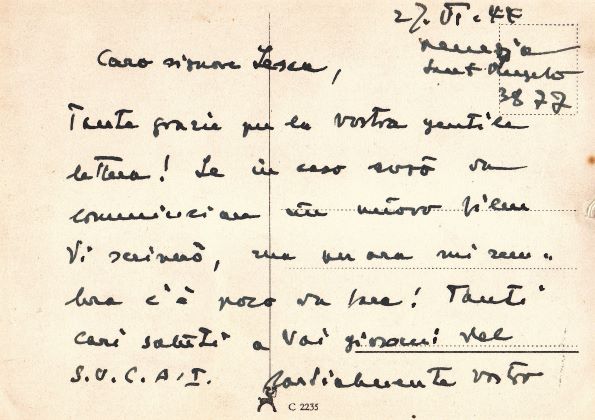 27. VI. 44
Venezia
Sant Angelo
3877
Caro signore
Tante grazie per la vostra gentile
lettera! Se in caso sarò da
comunicare un nuovo film
Vi scriverò, ma per ora mi sem-
bra c'è poco da fare! Tanti
cari saluti a Voi giovani del
S.U.C.A.I. Cordialmente vostro
C 2235